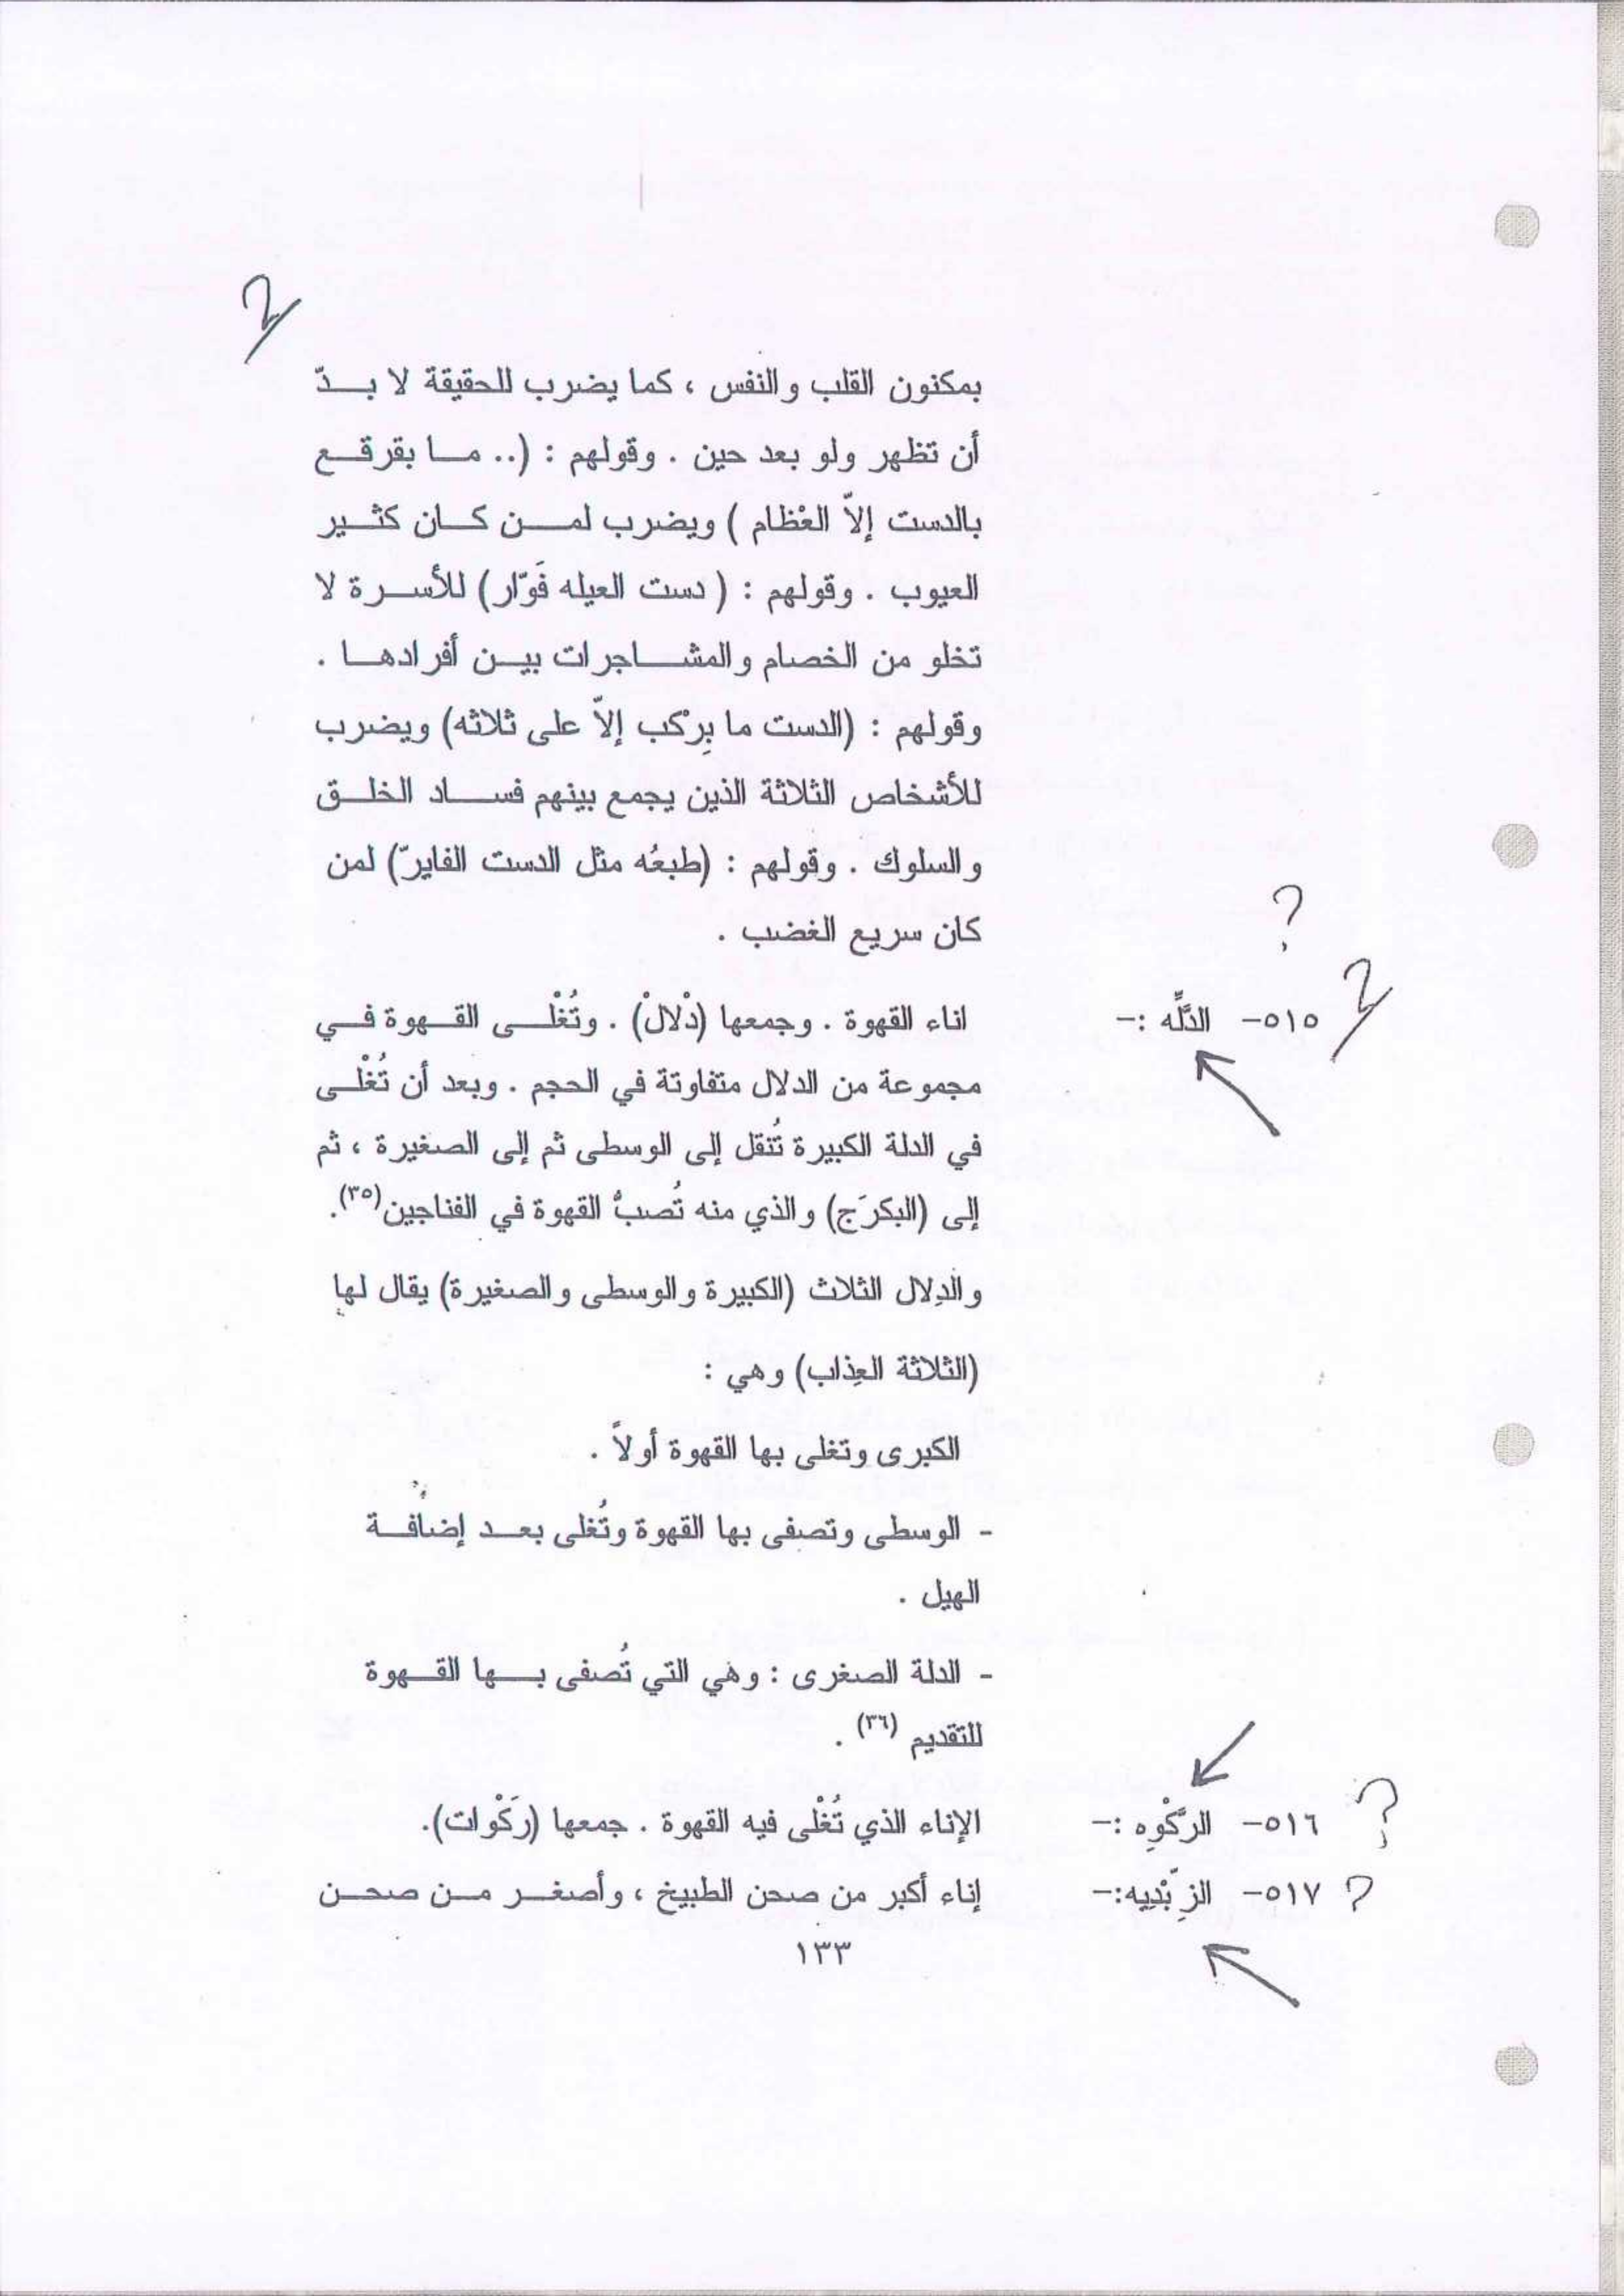 2
بمكنون القلب والنفس ، كما يضرب للحقيقة لا بـدّ
أن تظهر ولو بعد حين . وقولهم : (.. مـا بقرقـع
بالدست إلاّ العْظام ) ويضرب لمـن كـان كثـير
العيوب . وقولهم : ( دست العيله فَوّار) للأسـرة لا
تخلو من الخصام والمشـاجرات بيـن أفرادهـا .
وقولهم : (الدست ما بِرْكب إلاّ على ثلاثه) ويضرب
للأشخاص الثلاثة الذين يجمع بينهم فسـاد الخلـق
والسلوك . وقولهم : (طبعُه مثل الدست الفايرّ) لمن
كان سريع الغضب .
?
2 ٥١٥- الدَّلِّه :- اناء القهوة . وجمعها (دْلالْ) . وتُغْلـى القـهوة فـي
مجموعة من الدلال متفاوتة في الحجم . وبعد أن تُغْلـى
في الدلة الكبيرة تُنقل إلى الوسطى ثم إلى الصغيرة ، ثم
إلى (البكرَج) والذي منه تُصبُّ القهوة في الفناجين(٣٥).
والدِلال الثلاث (الكبيرة والوسطى والصغيرة) يقال لها
(الثلاثة العِذاب) وهي :
الكبرى وتغلى بها القهوة أولاً .
- الوسطى وتصفى بها القهوة وتُغلى بعـد إضافـة
الهيل .
- الدلة الصغرى : وهي التي تُصفى بـها القـهوة
للتقديم (٣٦) .
? ٥١٦- الرَّكْوِه :- الإناء الذي تُغْلى فيه القهوة . جمعها (رَكْوات).
? ٥١٧- الزِّبْدِيه:- إناء أكبر من صحن الطبيخ ، وأصغـر مـن صحـن
١٣٣